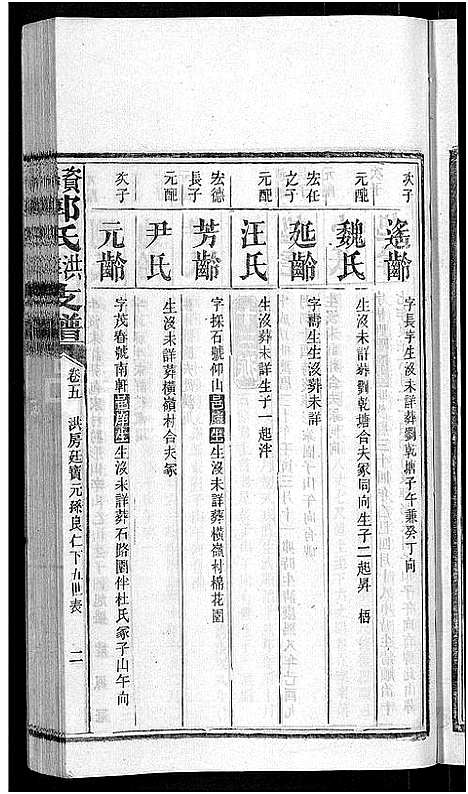 次子 遙齡 字長孚生沒未詳葬劉乾塘子午兼癸丁向
元配 魏氏 生沒未詳葬劉乾塘合夫冢同向生子二起昇 梧
宏任之子 延齡 字壽生生沒葬未詳
元配 汪氏 生沒葬未詳生子一起泮
宏德長子 芳齡 字採石號仰山邑庠生生沒未詳葬橫嶺村棉花園
元配 尹氏 生沒未詳葬橫嶺村合夫冢
次子 元齡 字茂春號南軒邑庠生生沒未詳葬石路園伴杜氏冢子山午向
資邱氏洪支譜 卷五 洪房廷寶元孫良仁下五世表 二